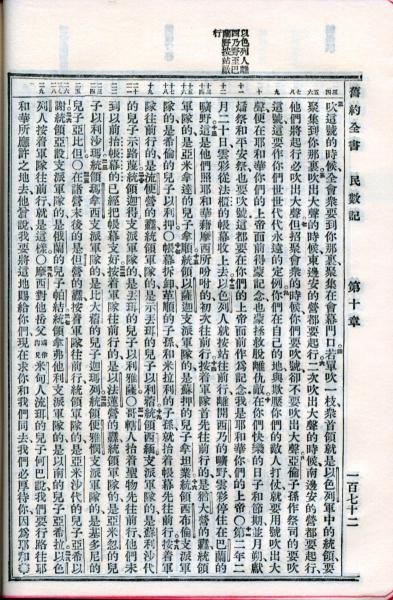 舊約全書 民數記 第十章 一百七十二
以色列人離
西乃野至巴
蘭野按站啟
行
吹這號的時候全會衆要到你那裏聚集在會幕門口若單吹一枝衆首領就是以色列軍中的統領要
聚集到你那裏吹出大聲的時候東邊安的營都要起行二次吹出大聲的時候南邊安的營都要起行
他們將起行必吹出大聲但招聚會衆的時候你們要吹號卻不要吹出大聲亞倫子孫作祭司的要吹
這號這要作你們世世代代永遠的定例你們在自己的地與欺壓你們的敵人打仗就要用號吹出大
聲便在耶和華你們的上帝面前得蒙記念也蒙拯救脫離仇敵在你們快樂的日子和節期並月朔獻
燔祭和平安祭也要吹號這都要在你們的上帝面前作爲記念我是耶和華你們的上帝〇第二年二
月二十日雲彩從法櫃的帳幕收上去以色列人就按站往前行離開西乃的曠野雲彩停住在巴蘭的
曠野這是他們照耶和華藉摩西所吩咐的初次往前行按着軍隊首先往前行的是猶大營的纛統領
軍隊的是亞米拿達的兒子拿順統領以薩迦支派軍隊的是蘇押的兒子拿坦業統領西布倫支派軍
隊的是希倫的兒子以利押〇帳幕拆卸革順的子孫和米拉利的子孫就抬着帳幕先往前行按着軍
隊往前行的是流便營的纛統領軍隊的是示丟珥的兒子以利蓿統領西緬支派軍隊的是蘇利沙代
的兒子示路蔑統領迦得支派軍隊的是丟珥的兒子以利雅薩〇哥轄人抬着聖物先往前行他們未
到以前抬帳幕的已經把帳幕支好按着軍隊往前行的是以法蓮營的纛統領軍隊的是亞米忽的兒
子以利沙瑪統領瑪拿西支派軍隊的是比大蓿的兒子迦瑪列統領便雅憫支派軍隊的是基多尼的
兒子亞比但〇在諸營末後的是但營的纛按着軍隊往前行統領軍隊的是亞米沙代的兒子亞希以
謝統領亞設支派軍隊的是俄蘭的兒子帕結統領拿弗他利支派軍隊的是以南的兒子亞希拉以色
列人按着軍隊往前行就是這樣〇摩西對他岳父或作內兄米甸人流珥的兒子何巴說我們要行路往耶
和華所應許之地去他曾說我要將這地賜給你們現在求你和我們同去我們必厚待你因爲耶和華